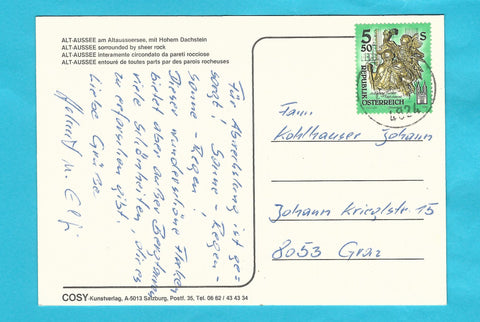 ALT-AUSSEE am Altausseersee, mit Hohem Dachstein
ALT-AUSSEE sorrounded by sheer rock
ALT-AUSSEE interamente circondato da pareti rocciose
ALT-AUSSEE entouré de toutes parts par des parois rocheuses
Für Abwechslung ist ge-
sorgt! Sonne - Regen -
Sonne - Regen!
Dieser wunderschöne Flecken
bietet aber außer Bergtouren
viele Schönheiten, die es
zu erforschen gibt.
Liebe Grüße
Helmut u. Elfi
5 50 S
REPUBLIK
ÖSTERREICH
Fam.
Kohlhauser Johann
Johann Krieglstr. 15
8053 Graz
COSY-Kunstverlag, A-5013 Salzburg, Postf. 35, Tel. 06 62 / 43 43 34